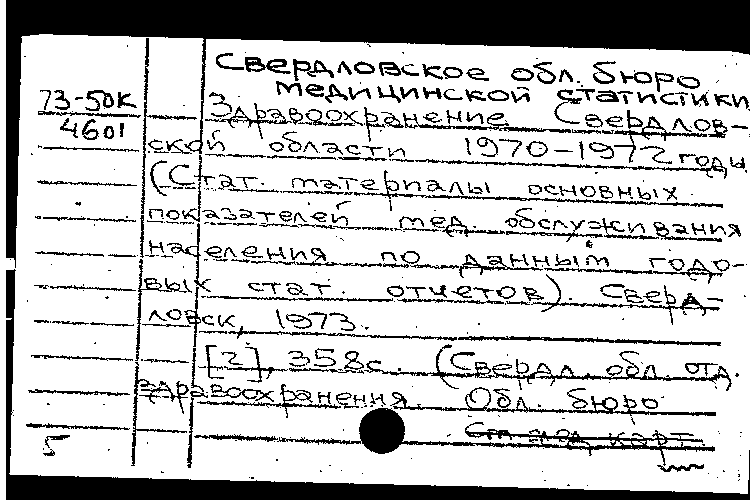 Свердловское обл. бюро
медицинской статистики
73-50к
4601
Здравоохранение Свердлов-
ской области 1970-1972 годы
(Стат. материалы основных
показателей мед. обслуживания
населения по данным годо-
вых стат. отчетов). Сверд-
ловск, 1973.
[2], 358с. (Свердл. обл. отд.
здравоохранения. Обл. бюро
мед. карт.
5